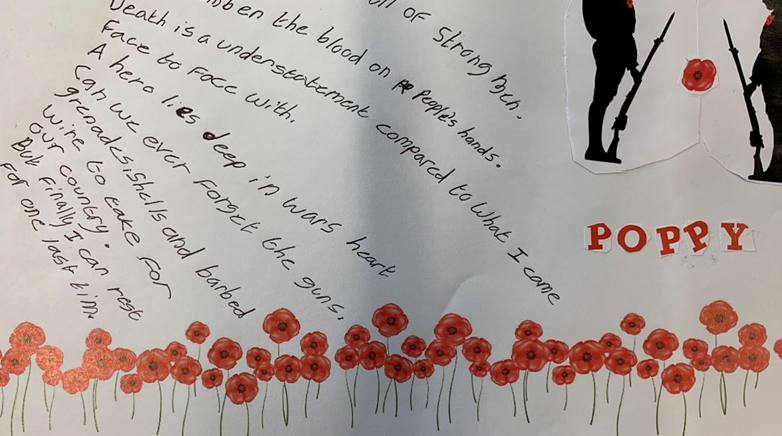 of Strong men.
the blood on People's hands.
Death is a understatement compared to what I came
Face to face with.
A hero lies deep in wars heart
Can we ever forget the guns,
grenades, shells and barbed
wire to take for
our country.
But finally I can rest
for one last tim.
POPPY